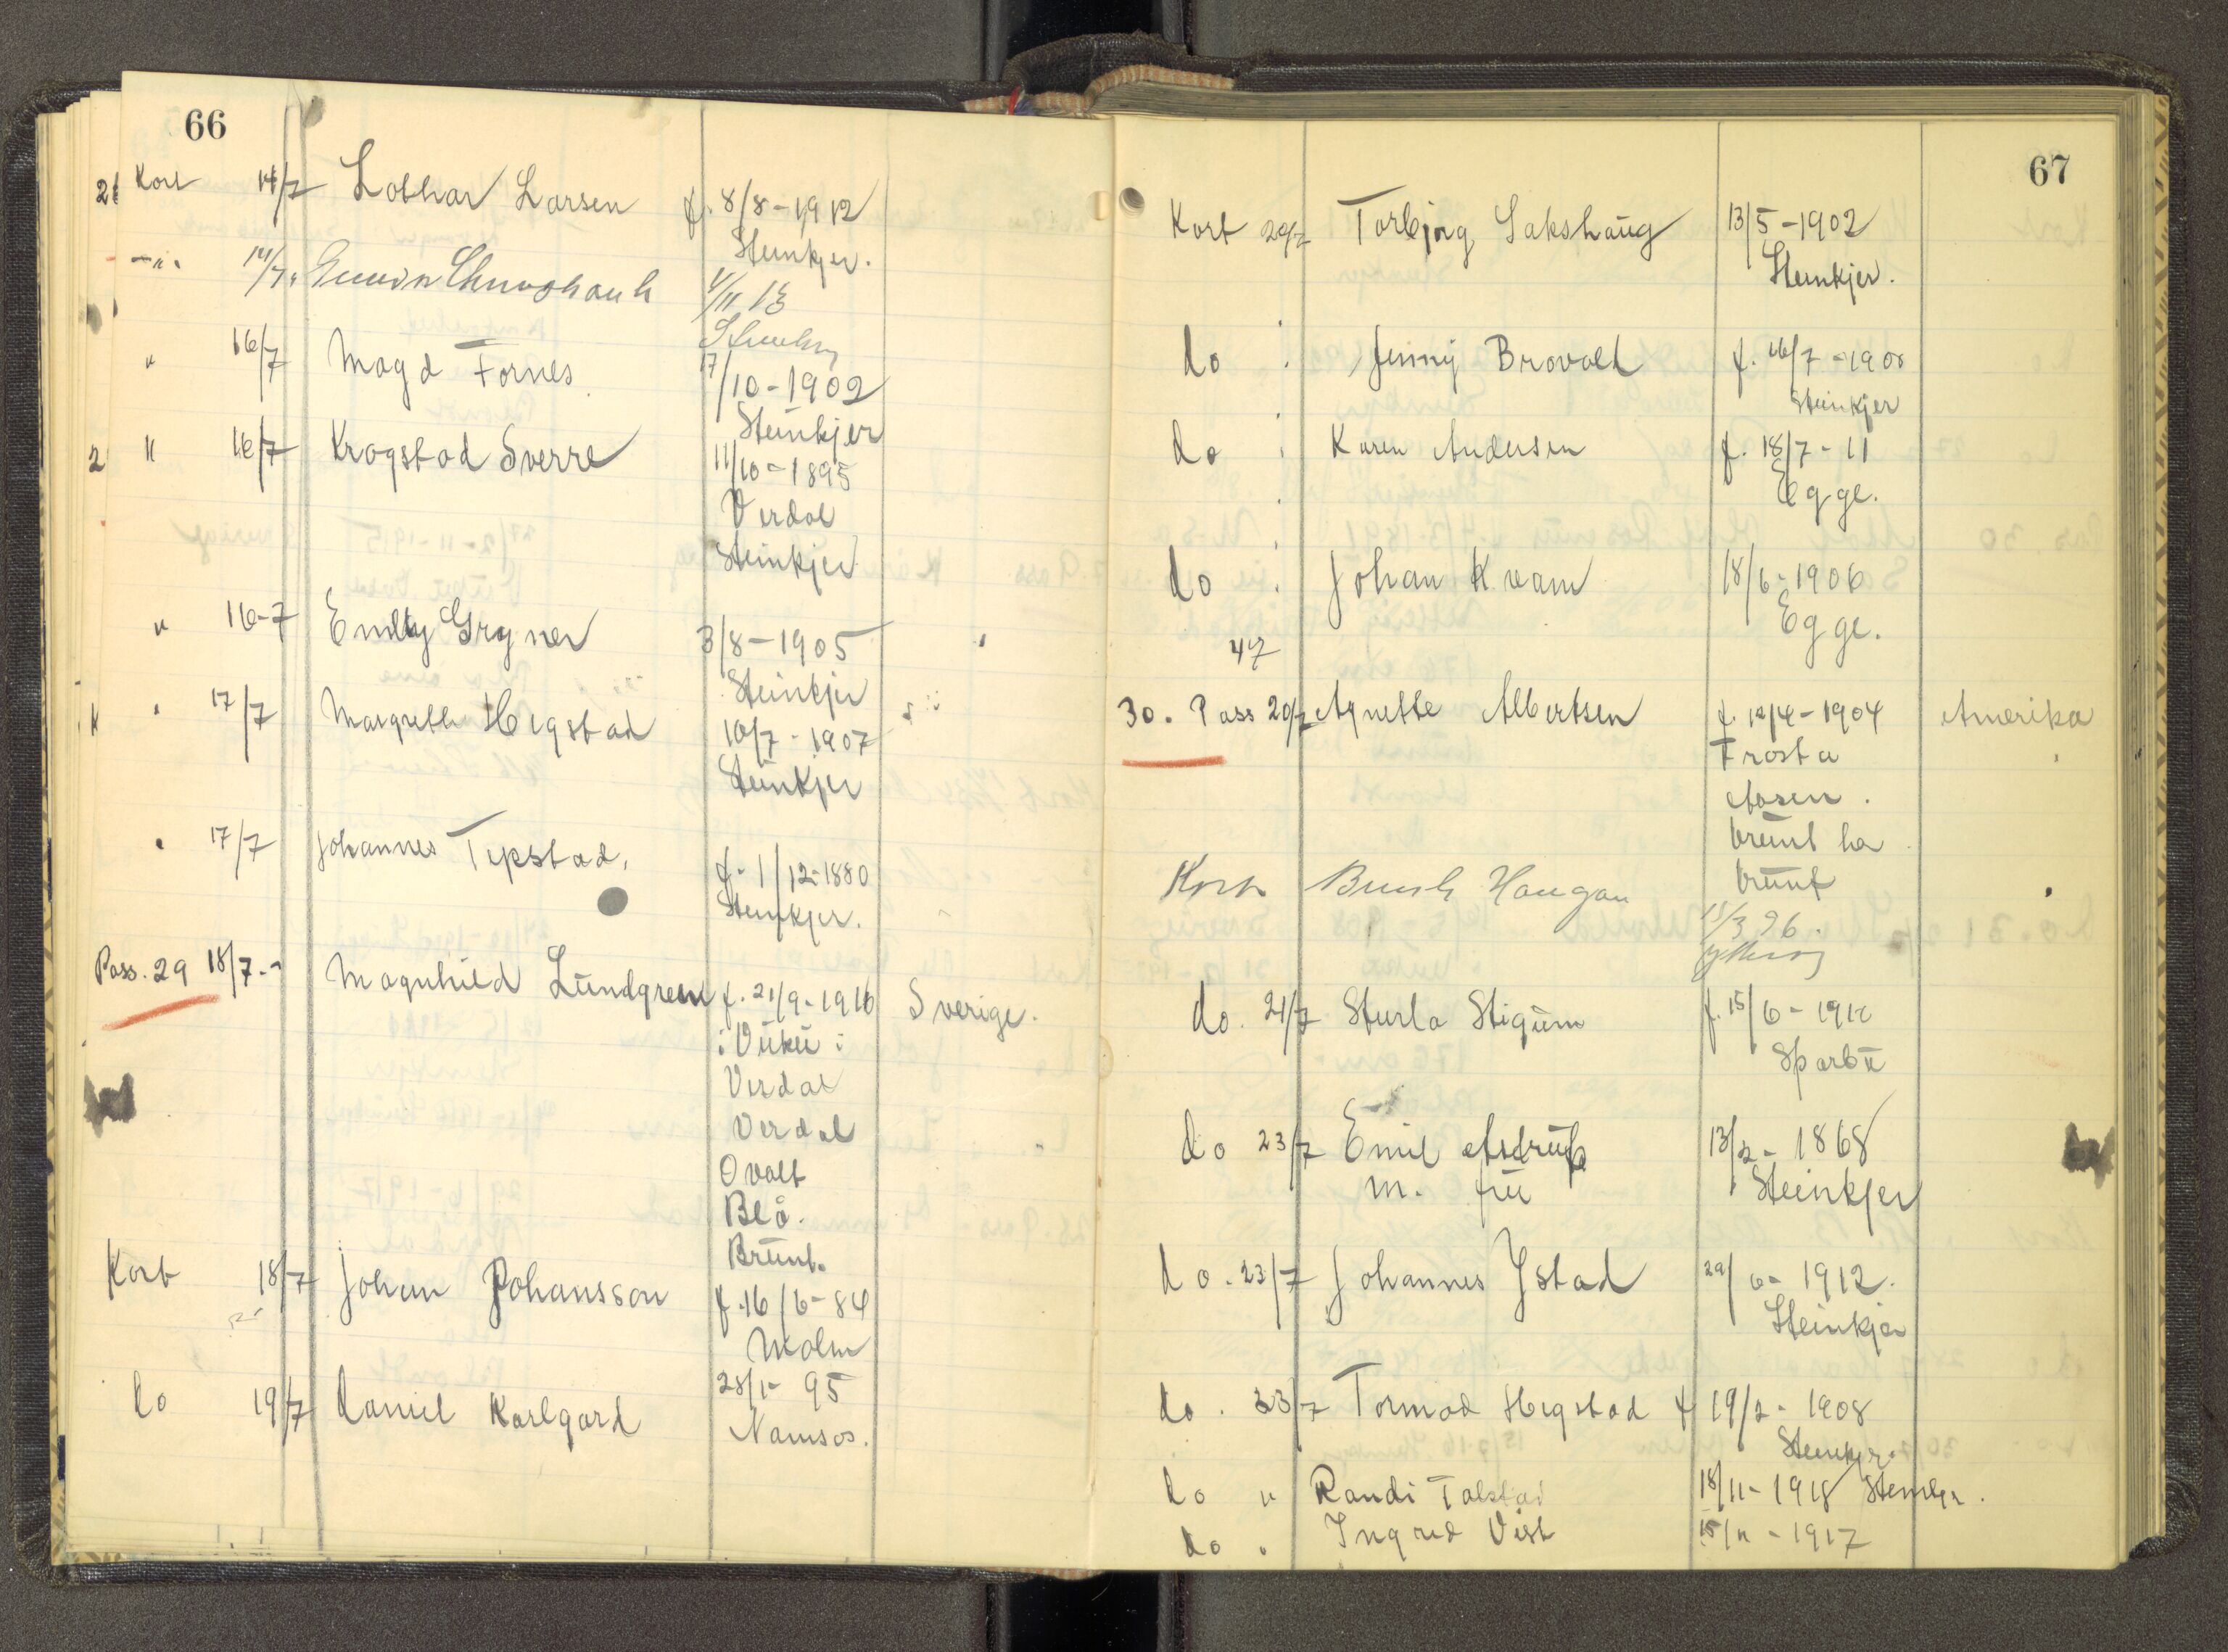 66
Kort 14/7 Lothar Larsen f. 8/8-1912
Steinkjer.
14/7
4/11 13
" 16/7 Magd Fornes 17/10-1902
Steinkjer
2 " 16/7 Kragstad Sverre 11/10-1895
Verdal
Steinkjer
" 16-7 Emlly Grgner 3/8-1905
Steinkjer
" 17/7 Margreth Hegstad 10/7-1907
Steinkjer
" 17/7 Johannes Tepstad. f. 1/12-1880
Steinkjer.
Pass. 29 18/7- Magnhild Lundgreen f. 21/9-1916 Sverige.
i Vuku i
Verdal
Verdal
Ovalt
Blå.
Brunt.
Kort 18/7 Johan Johansson f. 16/6-84
Malm
do 19/7 Daniel Karlgard 28/1-95
Namsos.
67
Kort 20/7 Torbjørg Sakshaug 13/5-1902
Steinkjer.
do Jenny Brovold f. 16/7-1900
Steinkjer
do Karen Andersen f. 18/7-11
Egge.
do Johan Kvam 18/6-1906
Egge.
47
30. Pass 20/7 Agnette Albertsen f. 12/4-1904 Amerika
Frosta
Aasen.
brunt ha
brunt
Kort Haugan
11/3 96.
do. 21/7 Sturla Stigum f. 15/6-1912
Sparbu
do 23/7 Emil Astrup 13/2-1868
m. fru Steinkjer
do. 23/7 Johannes Ystad 29/6-1912.
Steinkjer
do. 23/7 Tormod Hegstad f 19/2-1908
Steinkjer.
do " Randi Talstad 18/11-1918 Steinkjer.
do " Ingrid Vist 15/11-1917